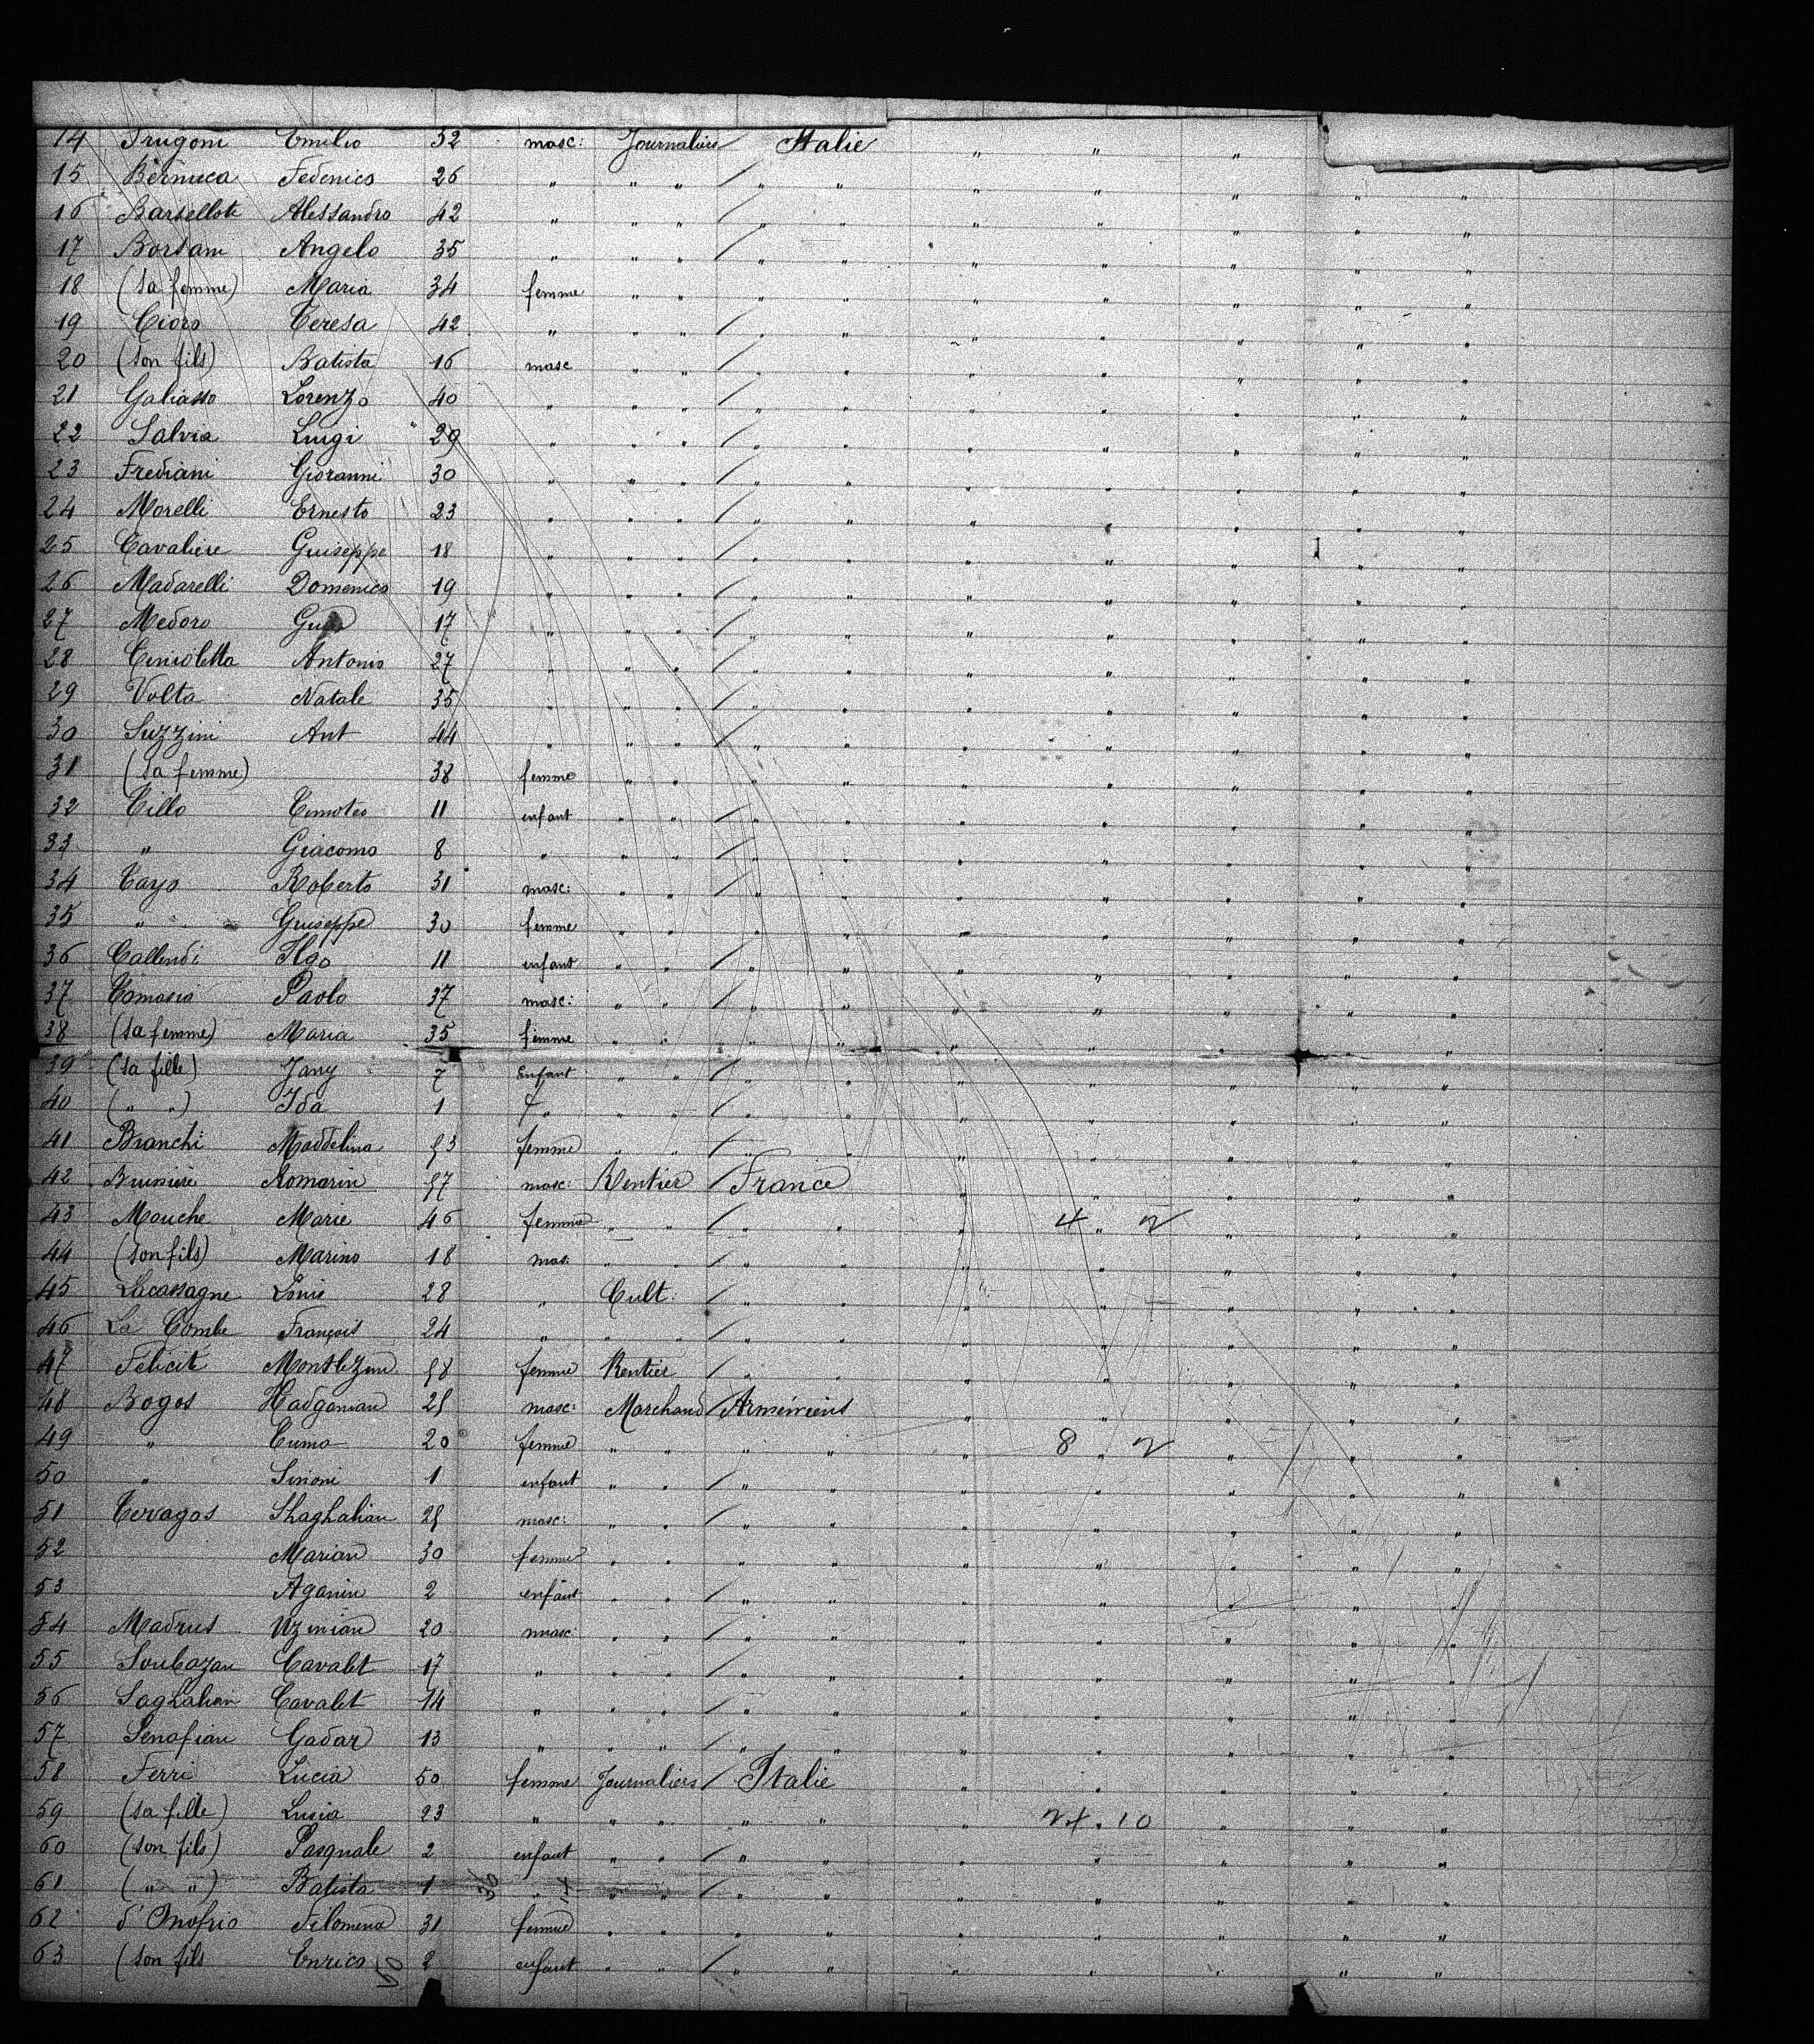 14 Frugoni Emilio 32 masc: Journaliers Italie " " "
15 Bernuca Federico 26 " " " " " " " " " "
16 Barsellote Alessandro 42 " " " " " " " " " "
17 Borsani Angelo 35 " " " " " " " " " "
18 (sa femme) Maria 34 femme " " " " " " " " "
19 Cioro Teresa 42 " " " " " " " " " "
20 (son fils) Batista 16 masc " " " " " " " " "
21 Galiasso Lorenzo 40 " " " " " " " " " "
22 Salvia Luigi 29 " " " " " " " " " "
23 Frediani Giovanni 30 " " " " " " " " " "
24 Morelli Ernesto 23 " " " " " " " " " "
25 Cavaliere Guiseppe 18 " " " " " " " " " "
26 Madarelli Domenico 19 " " " " " " " " " "
27 Medoro 17 " " " " " " " " " "
28 Antonio 27 " " " " " " " " " "
29 Volta Natale 35 " " " " " " " " " "
30 Suzzini Ant 44 " " " " " " " " " "
31 (sa femme) 38 femme " " " " " " " " "
32 Tillo Timoteo 11 enfant " " " " " " " " "
33 " Giacomo 8 " " " " " " " " " "
34 Cayo Roberto 31 masc: " " " " " " " " "
35 " Guiseppe 30 femme " " " " " " " " "
36 Callendi Ilgo 11 enfant " " " " " " " " "
37 Tomasia Paolo 37 masc: " " " " " " " " "
38 (sa femme) Maria 35 femme " " " " " " " " "
39 (sa fille) Jany 7 Enfant " " " " " " " " "
40 ( " " ) Ida 1 f " " " " " " " " " "
41 Bianchi Maddelina 53 femme " " " " " " " " "
42 Buissière Romarin 57 masc: Rentier France " " " " "
43 Mouche Marie 46 femme " " " " " 4 " 2 " " "
44 (son fils) Marino 18 mas: " " " " " " " " "
45 Lacassagne Louis 28 " Cult: " " " " " " "
46 La Combe François 24 " " " " " " " " " "
47 Félicité Montlezun 58 femme Rentier " " " " " " "
48 Bogos Hadganian 25 masc: Marchand Arméniens " " " " "
49 " Cuma 20 femme " " " " " 8 " 2 " " "
50 " Sinoni 1 enfant " " " " " " " " "
51 Tervagos Shaghalian 25 masc: " " " " " " " " "
52 Marian 30 femme " " " " " " " " "
53 Aganin 2 enfant " " " " " " " " "
54 Madrus Uzinian 20 masc: " " " " " " " " "
55 Soukazan Cavalet 17 " " " " " " " " " "
56 Saghalian Cavalet 14 " " " " " " " " " "
57 Senafian Gadar 13 " " " " " " " " " "
58 Ferri Lucia 50 femme Journaliers Italie " " " " "
59 (sa fille) Lusia 23 " " " " " " 24 . 10 " " "
60 (son fils) Pasquale 2 enfant " " " " " " " " "
61 ( " " ) Batista 1 36 " 14 " " " " " " " " "
62 d'Onofrio Filomena 31 femme " " " " " " " " "
63 (son fils Enrico 50 2 enfant " " " " " " " " "